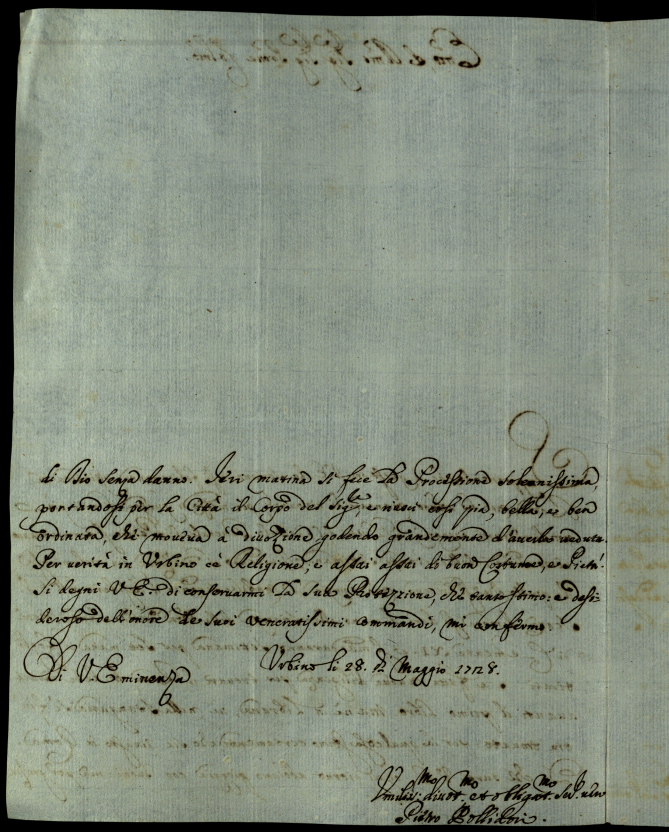 di Dio senza danno. Ieri matina si fece la Processione solennissima,
portandosi per la Città il Corpo del Sig.re e riuscì così pia, bella, e ben
ordinata, che moveva à divozione, godendo grandemente d'averla veduta.
Per verità in Urbino c'è Religione, e assai assai di buon Costume, e Pietà.
Si degni V. E. di conservarmi la sua Protezzione, che tanto stimo: e desi
deroso dell'onore de suoi veneratissimi commandi, mi confermo
Di V. Eminenza
Urbino li 28. di Maggio 1728.
Umiliss.mo divot.mo et obligat.mo ser.re vero
Pietro Pollidori.